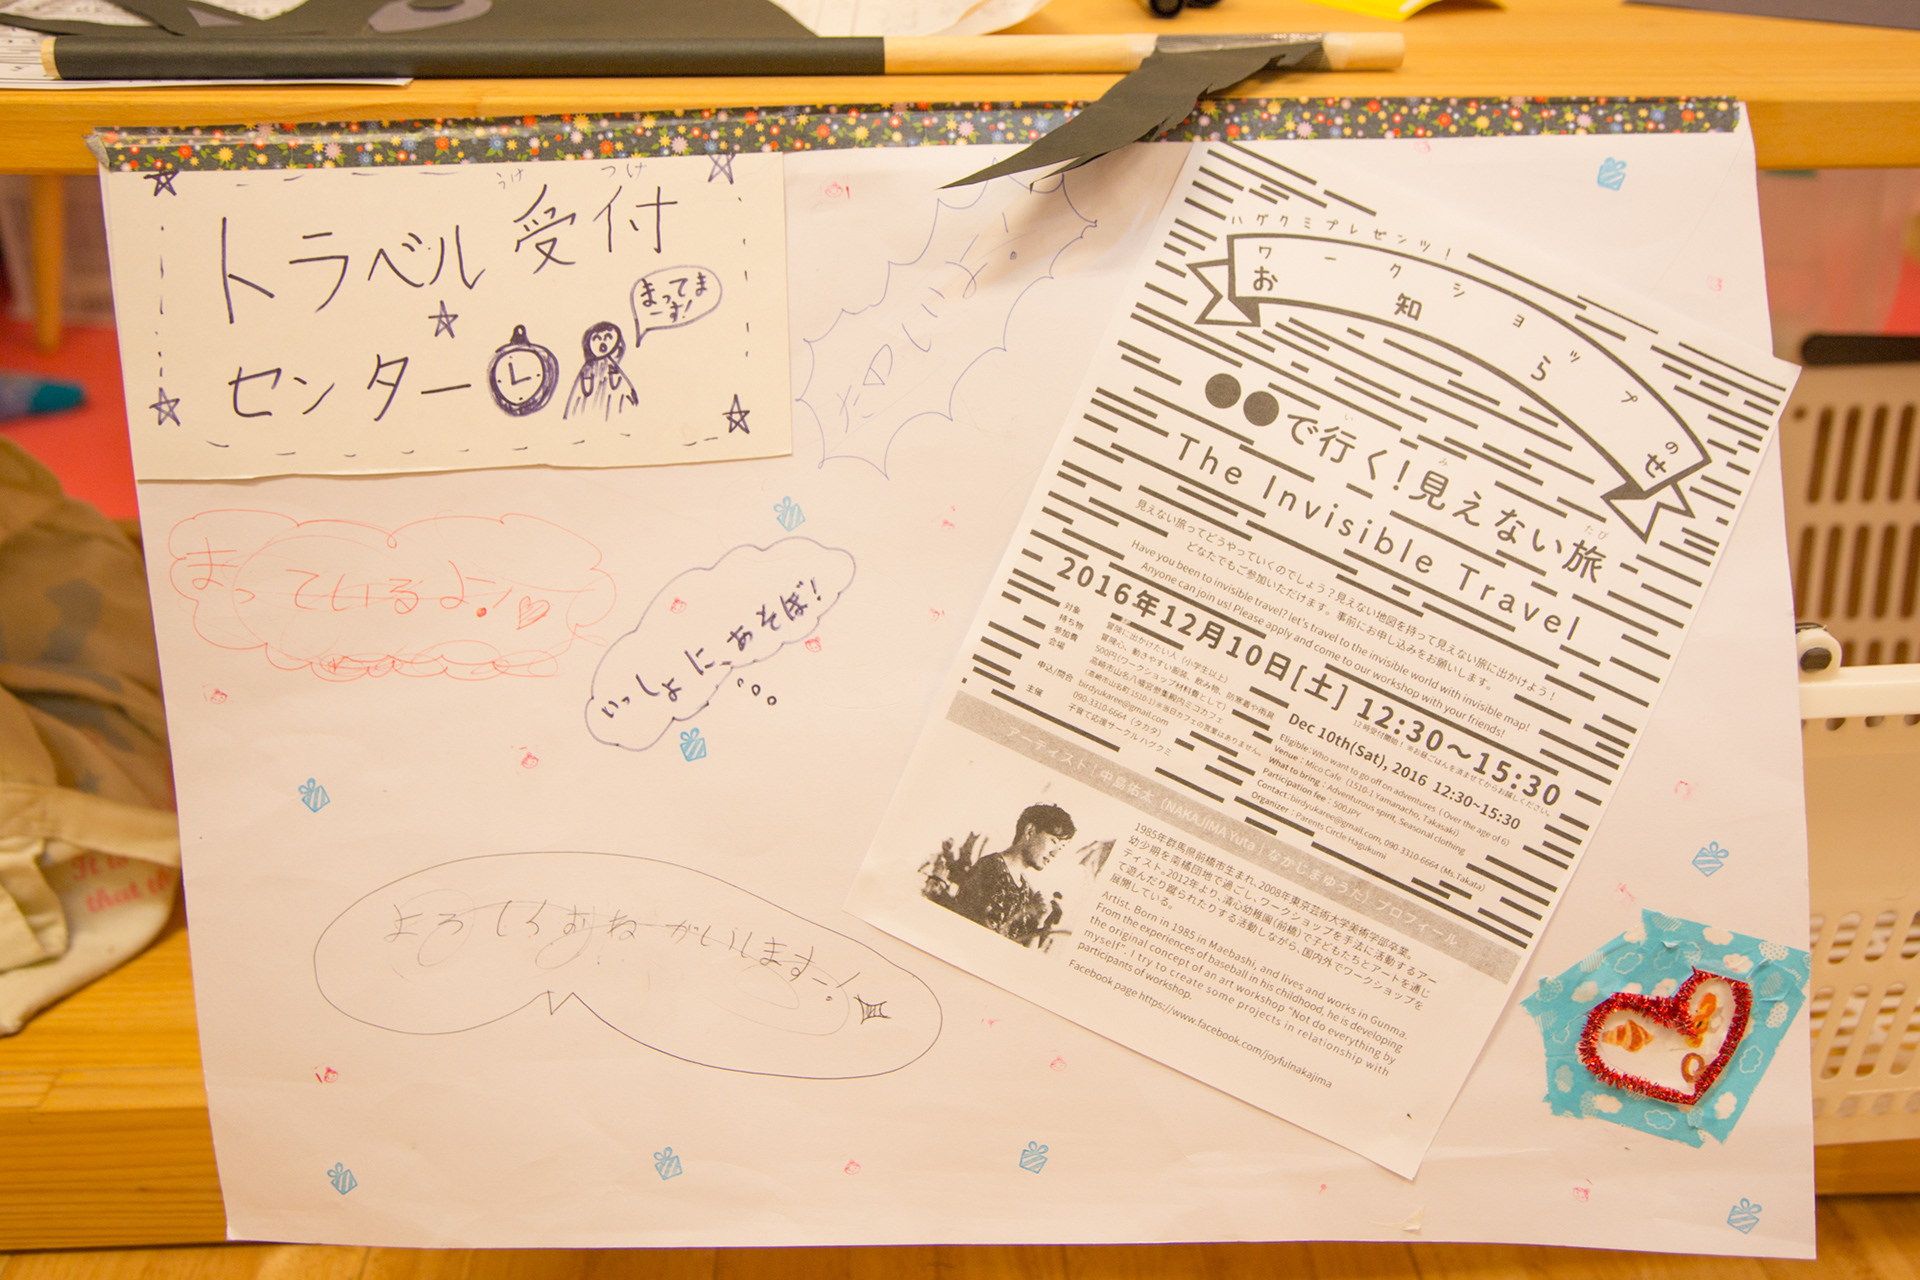 うけ つけ
トラベル受付
センター
まってま
ーす!
たのしいよ!
まっているよ!
いっしょに、あそぼ!
よろしくおねがいしますー!
ハグクミプレゼンツ!
ワークショップの
お知らせ
●●で行く!見えない旅
The Invisible Travel
見えない旅ってどうやっていくのでしょう?見えない地図を持って見えない旅に出かけよう!
どなたでもご参加いただけます。事前にお申し込みをお願いします。
Have you been to invisible travel? let's travel to the invisible world with invisible map!
Anyone can join us! Please apply and come to our workshop with your friends!
2016年12月10日[土] 12:30〜15:30
対象 冒険に出かけたい人(小学生以上)
持ち物 冒険心、動きやすい服装、飲み物、防寒着や雨具
参加費 500円(ワークショップ材料費として)
会場 高崎市山名八幡宮参集殿内ミコカフェ
(高崎市山名町1510-1)※当日カフェの営業はありません。
申込/問合 birdyukaree@gmail.com
090-3310-6664(タカタ)
主催 子育て応援サークル ハグクミ
Dec 10th(Sat), 2016 12:30~15:30
Eligible : Who want to go off on adventures ( Over the age of 6)
Venue : Mico Cafe (1510-1 Yamanacho, Takasaki)
What to bring : Adventurous spirit, Seasonal clothing
Participation fee : 500JPY
Contact : birdyukaree@gmail.com, 090-3310-6664 (Ms.Takata)
Organizer : Parents Circle Hagukumi
アーティスト|中島佑太(NAKAJIMA Yuta|なかじまゆうた)プロフィール
1985年群馬県前橋市生まれ、2008年東京芸術大学美術学部卒業。
幼少期を南橘団地で過ごし、ワークショップを手法に活動するアー
ティスト。2012年より、清心幼稚園(前橋)で子どもたちとアートを通じ
て遊んだり蹴られたりする活動しながら、国内外でワークショップを
展開している。
Artist. Born in 1985 in Maebashi, and lives and works in Gunma.
From the experiences of baseball in his childhood, he is developing
the original concept of an art workshop "Not do everything by
myself". I try to create some projects in relationship with
participants of workshop.
Facebook page https://www.facebook.com/joyfulnakajima